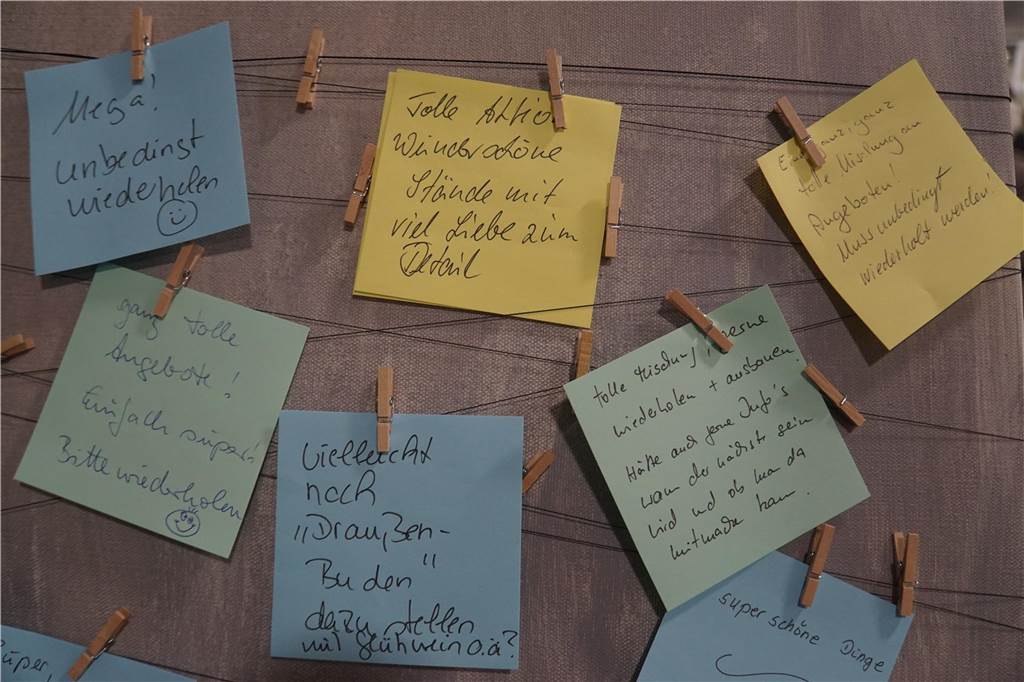 Mega!
unbedingt
wiederholen
Tolle Aktion
Wunderschöne
Stände mit
viel Liebe zum
Detail
tolle Mischung an
Angeboten!
Muss unbedingt
wiederholt werden!
ganz tolle
Angebote!
Einfach super!
Bitte wiederholen
Vielleicht
noch
„Draußen-
Buden"
dazu stellen
mit Glühwein o.ä?
tolle Mischung, gerne
wiederholen + ausbauen.
Hätte auch gerne Info's
wann der nächste sein
wird und ob man da
mitmachen kann.
super schöne Dinge
super,